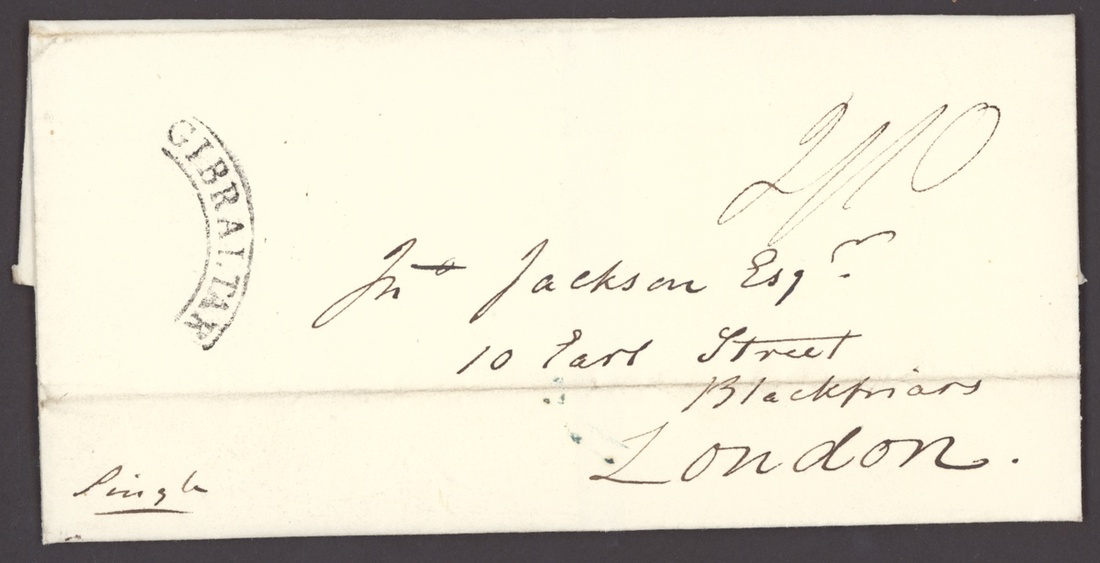 GIBRALTAR
2/10
Jno Jackson Esqr
10 Earl Street
Blackfriars
London.
Single